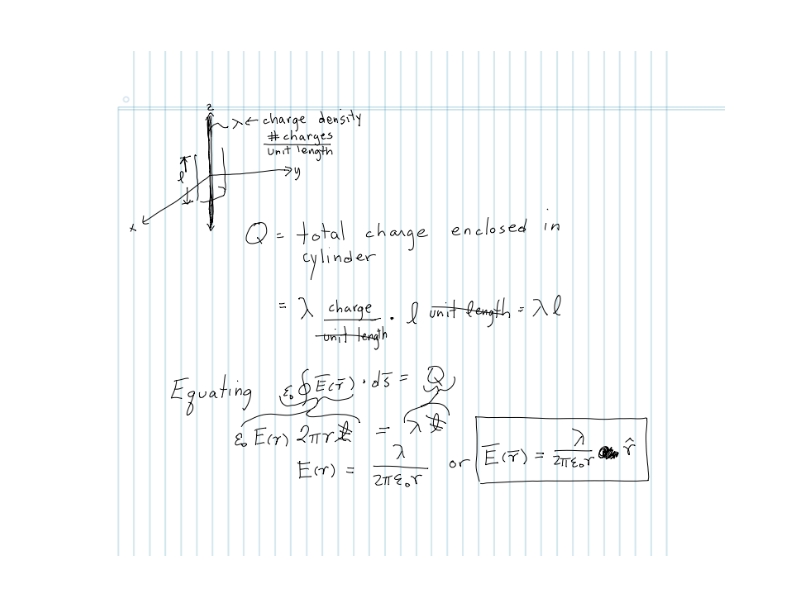 z
λ ← charge density
# charges
unit length
l
y
x
Q = total charge enclosed in
cylinder
= λ charge/unit length · l unit length = λ l
Equating ε₀ ∮ E̅(r̅) · ds̅ = Q
ε₀ E(r) 2πr l = λ l
E(r) = λ/2πε₀r or E̅(r̅) = λ/2πε₀r r̂